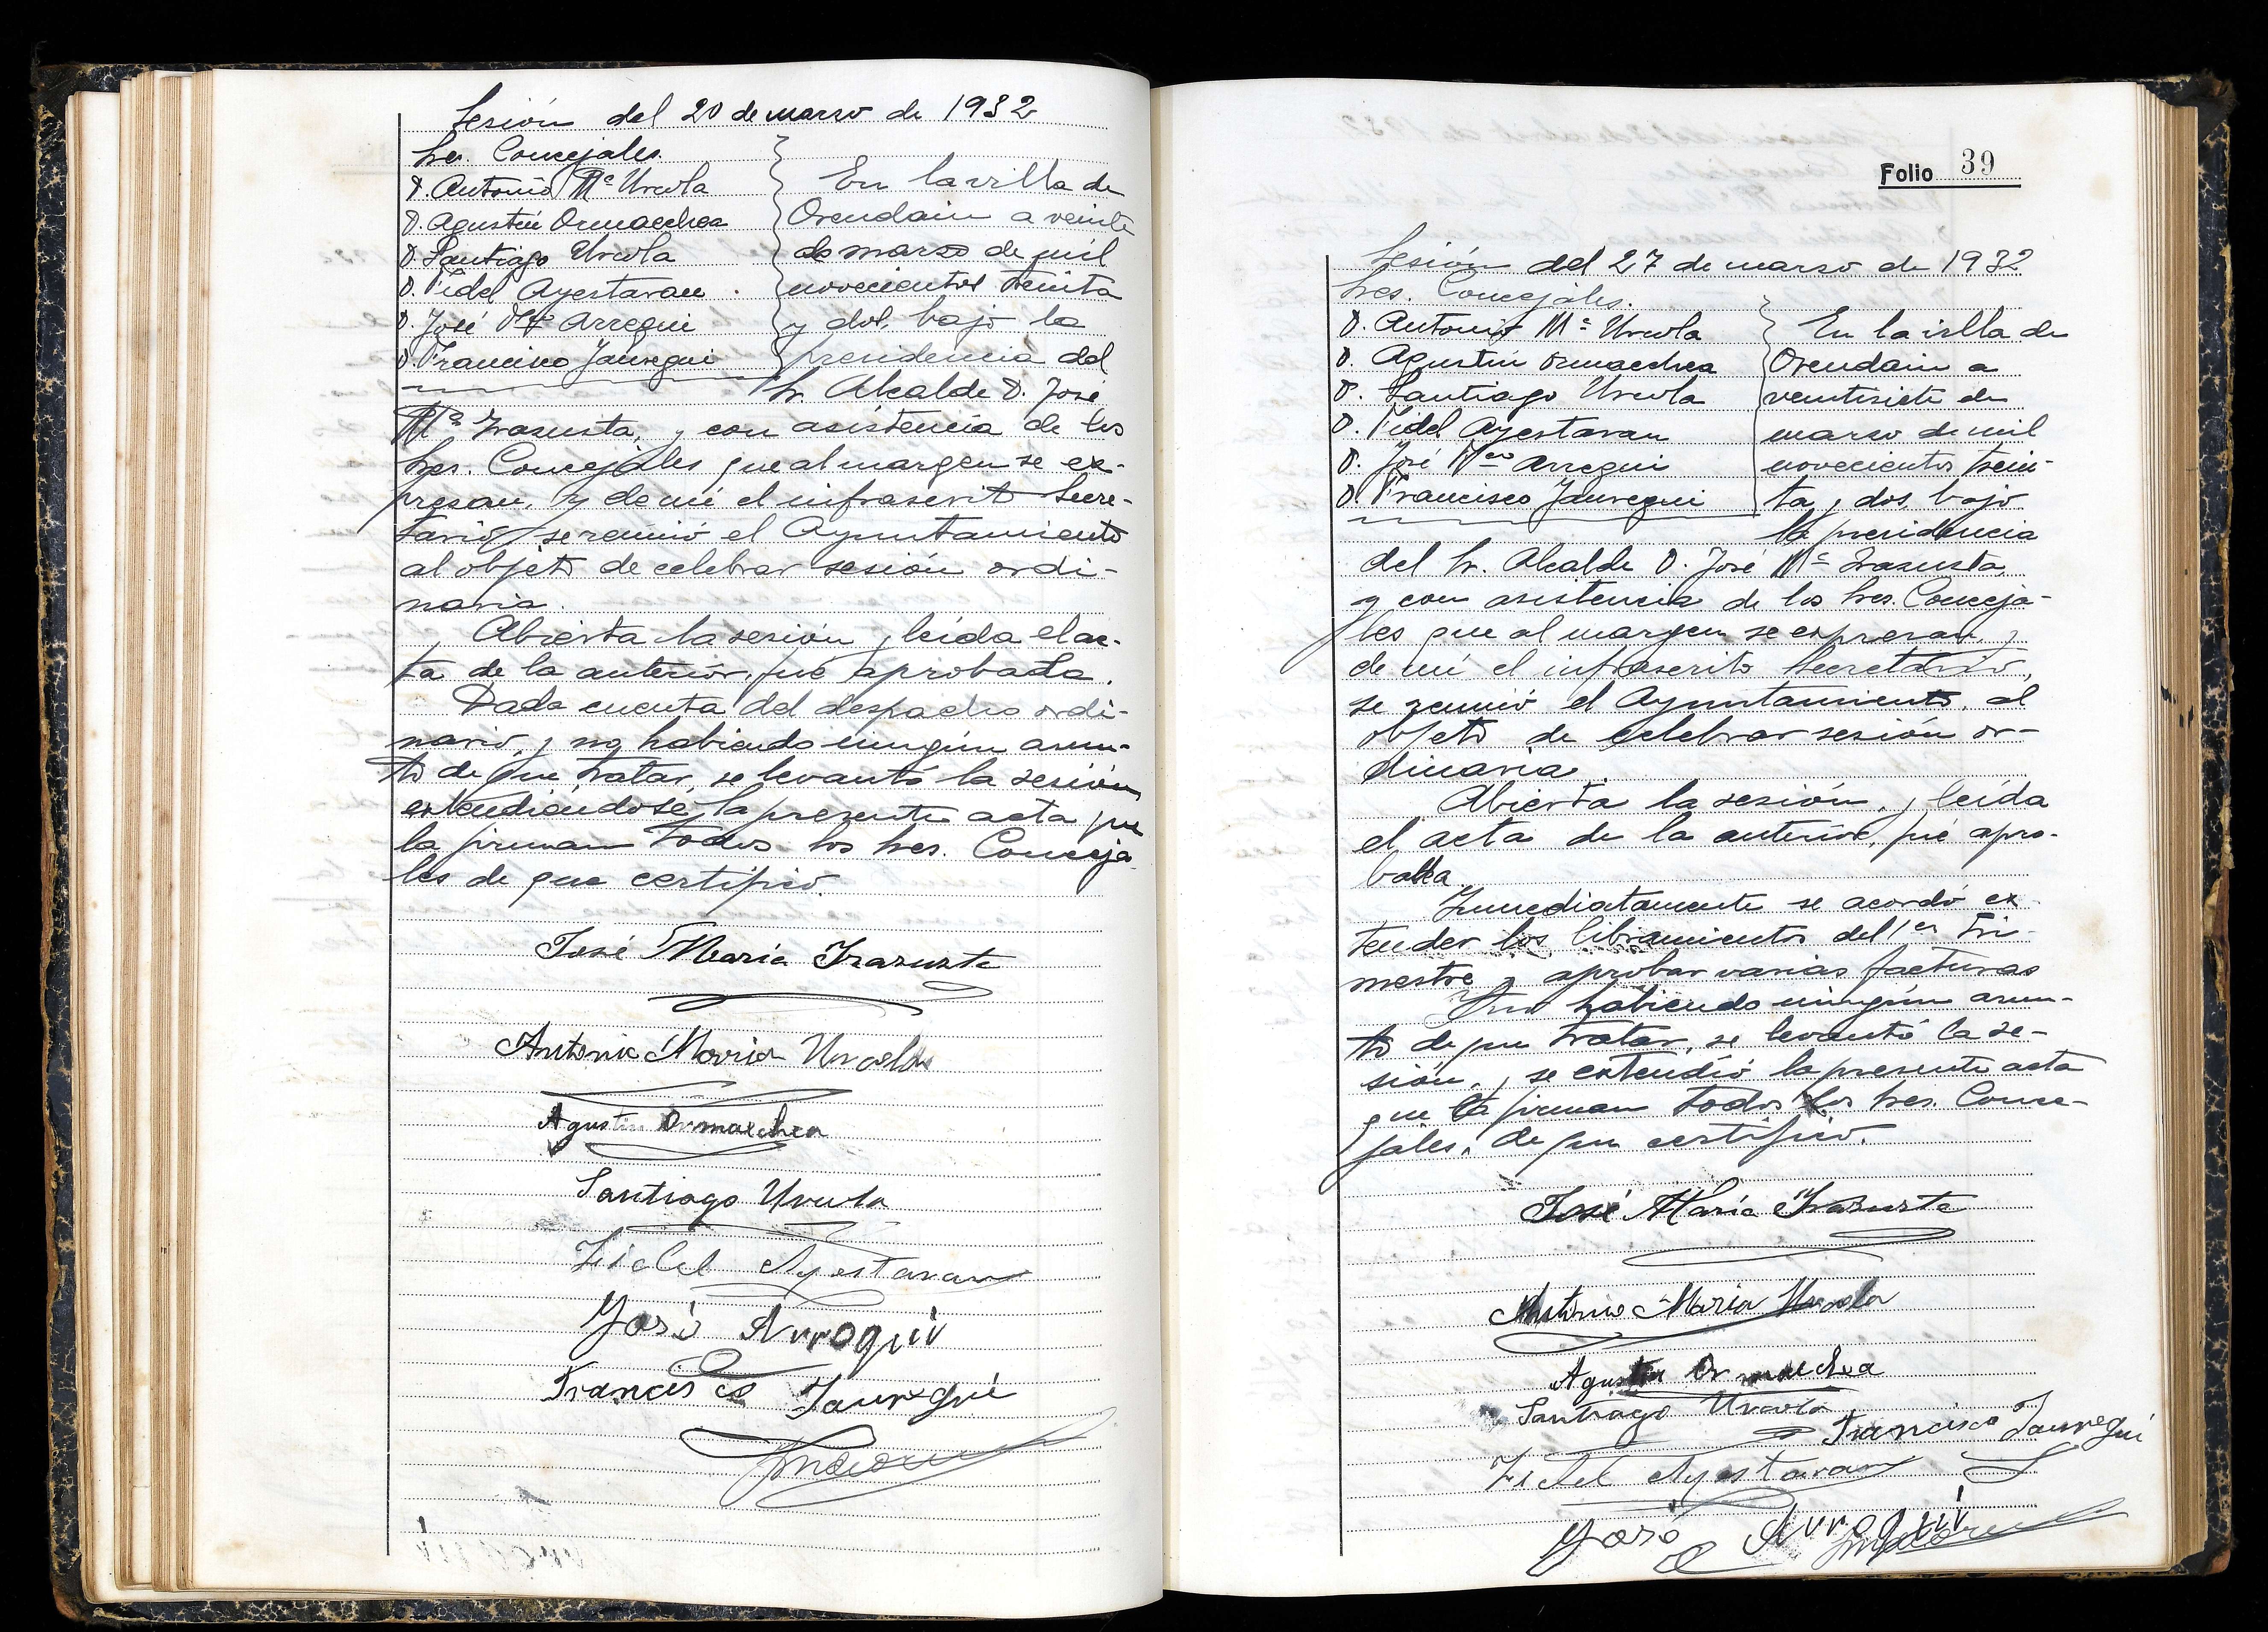 Sesión del 20 de marzo de 1932
Sres. Concejales.
D. Antonio Mª Urcola
D. Agustín Ormaechea
D. Santiago Urcola
D. Fidel Ayestaran
D. José Arregui
D. Francisco Jauregui
En la villa de
Orendain a veinte
de marzo de mil
novecientos treinta
y dos, bajo la
presidencia del
Sr. Alcalde D. José
Mª Irazusta, y con asistencia de los
Sres. Concejales que al margen se ex-
presan, y de mí el infrascrito Secre-
tario, se reunió el Ayuntamiento
al objeto de celebrar sesión ordi-
naria.
Abierta la sesión y leída el ac-
ta de la anterior, fué aprobada.
Dada cuenta del despacho ordi-
nario, y no habiendo ningún asun-
to de que tratar, se levantó la sesión
extendiéndose la presente acta que
la firman todos los Sres. Conceja-
les de que certifico.
José María Irazusta
Antonio María Urcola
Agustin Ormaechea
Santiago Urcola
Fidel Ayestaran
José Arregui
Francisco Jauregui
Folio 39
Sesión del 27 de marzo de 1932
Sres. Concejales.
D. Antonio Mª Urcola
D. Agustín Ormaechea
D. Santiago Urcola
D. Fidel Ayestaran
D. José Arregui
D. Francisco Jauregui
En la villa de
Orendain a
veintisiete de
marzo de mil
novecientos trein-
ta y dos, bajo
la presidencia
del Sr. Alcalde D. José Mª Irazusta,
y con asistencia de los Sres. Conceja-
les que al margen se expresan, y
de mí el infrascrito Secretario,
se reunió el Ayuntamiento, al
objeto de celebrar sesión or-
dinaria.
Abierta la sesión, y leída
el acta de la anterior, fué apro-
bada
Inmediatamente se acordó ex-
tender los libramientos del 1er tri-
mestre y aprobar varias facturas
Y no habiendo ningún asun-
to de que tratar, se levantó la se-
sión, y se extendió la presente acta
que la firman todos los Sres. Conce-
jales, de que certifico.
José María Irazusta
Antonio María Urcola
Agustin Ormaechea
Santiago Urcola
Francisco Jauregui
Fidel Ayestaran
José Arregui